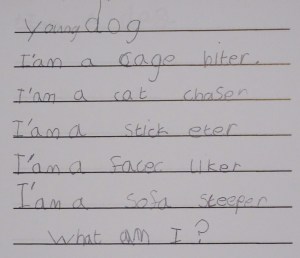 young dog
I'am a cage biter.
I'am a cat chaser
I'am a stick eter
I'am a facec liker
I'am a sofa sleeper
What am I?